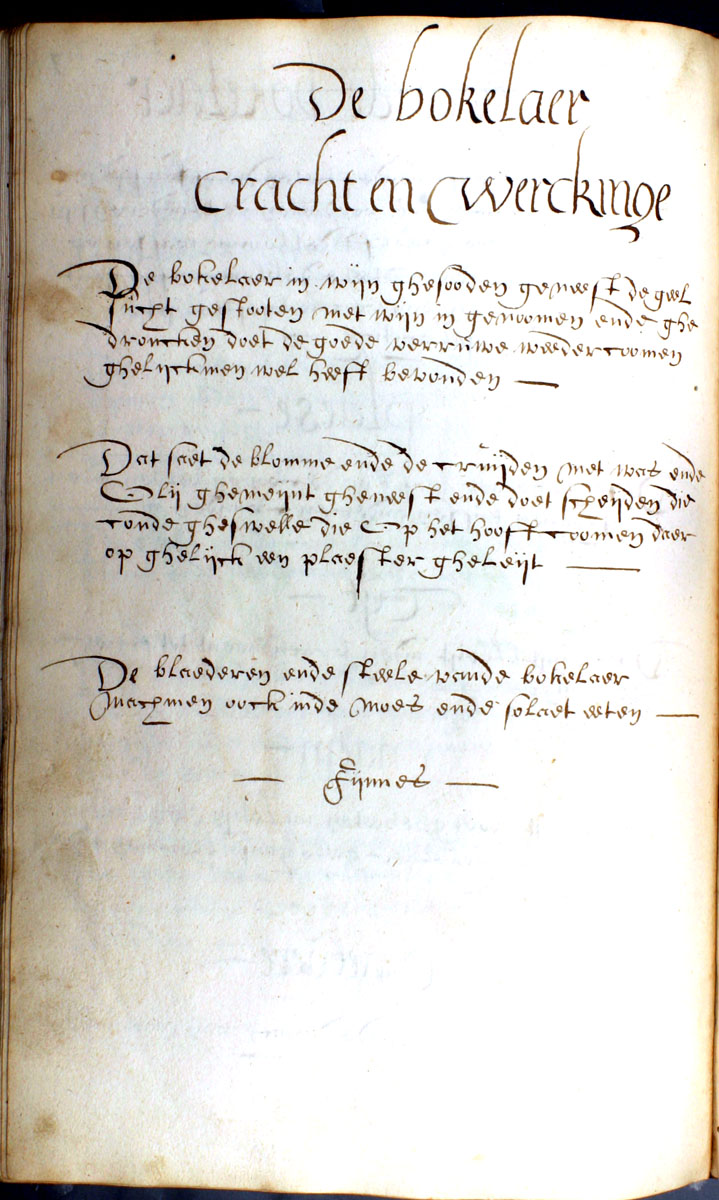 De bokelaer
Cracht en Werckinge
De bokelaer in wijn ghesooden geneest de geel
sucht gestooten met wijn in genoomen ende ghe
droncken doet de goede verruwe weedercoomen
ghelijckmen wel heeft bevonden —
Dat saet de blomme ende de cruijden met was ende
Olij ghemeijnt gheneest ende doet scheijden die
coude gheswelle die Op het hooft coomen daer
op ghelijck een plaester gheleijt —
De blaederen ende steele vande bokelaer
Machmen oock inde moes ende solaet eeten —
— Fijnnes —